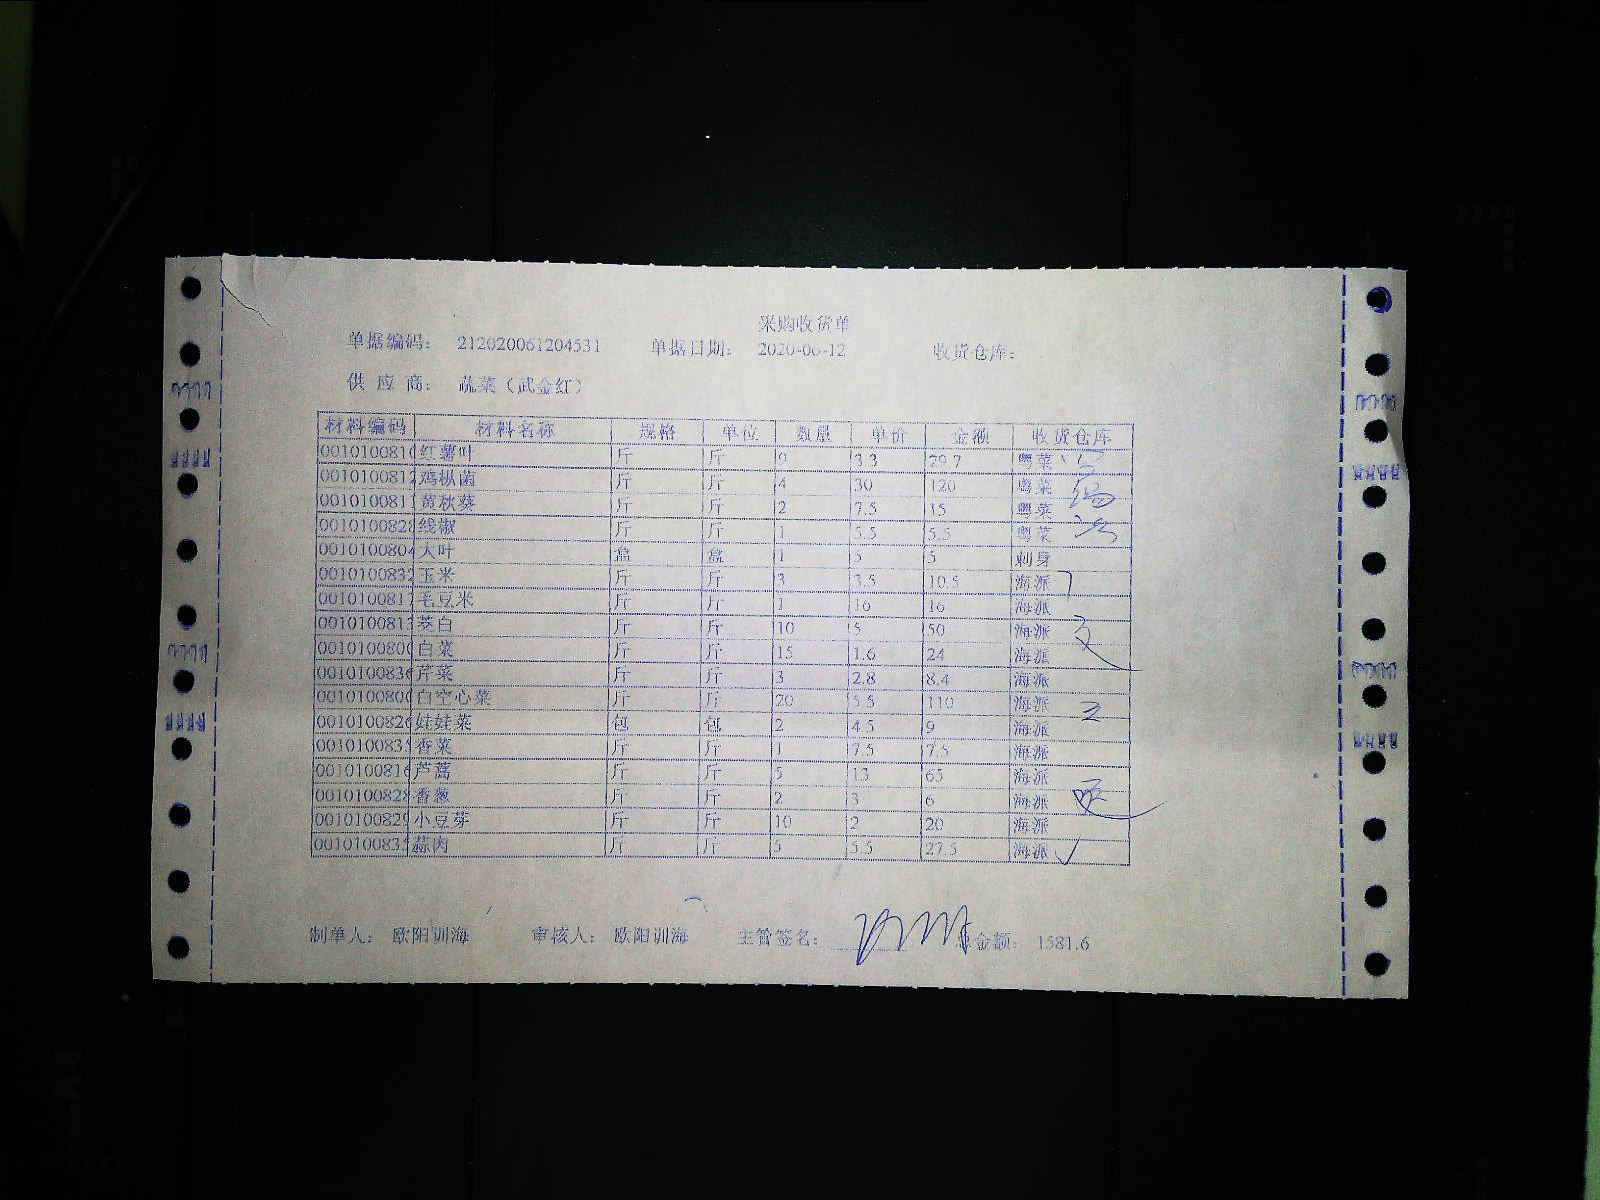 采购收货单
单据编码： 212020061204531 单据日期： 2020-06-12 收货仓库：
供 应 商： 蔬菜（武金红）
材料编码 材料名称 规格 单位 数量 单价 金额 收货仓库
001010081 红薯叶 斤 斤 9 3.3 29.7 粤菜
001010081 鸡枞菌 斤 斤 4 30 120 粤菜
001010081 黄秋葵 斤 斤 2 7.5 15 粤菜
001010082 线椒 斤 斤 1 5.5 5.5 粤菜
001010080 大叶 盒 盒 1 5 5 刺身
001010083 玉米 斤 斤 3 3.5 10.5 海派
001010081 毛豆米 斤 斤 1 16 16 海派
001010081 茭白 斤 斤 10 5 50 海派
001010080 白菜 斤 斤 15 1.6 24 海派
001010083 芹菜 斤 斤 3 2.8 8.4 海派
001010080 白空心菜 斤 斤 20 5.5 110 海派
001010082 娃娃菜 包 包 2 4.5 9 海派
001010083 香菜 斤 斤 1 7.5 7.5 海派
001010081 芦蒿 斤 斤 5 13 65 海派
001010082 香葱 斤 斤 2 3 6 海派
001010082 小豆芽 斤 斤 10 2 20 海派
001010083 蒜肉 斤 斤 5 5.5 27.5 海派
制单人： 欧阳训海 审核人： 欧阳训海 主管签名： 总金额： 1581.6